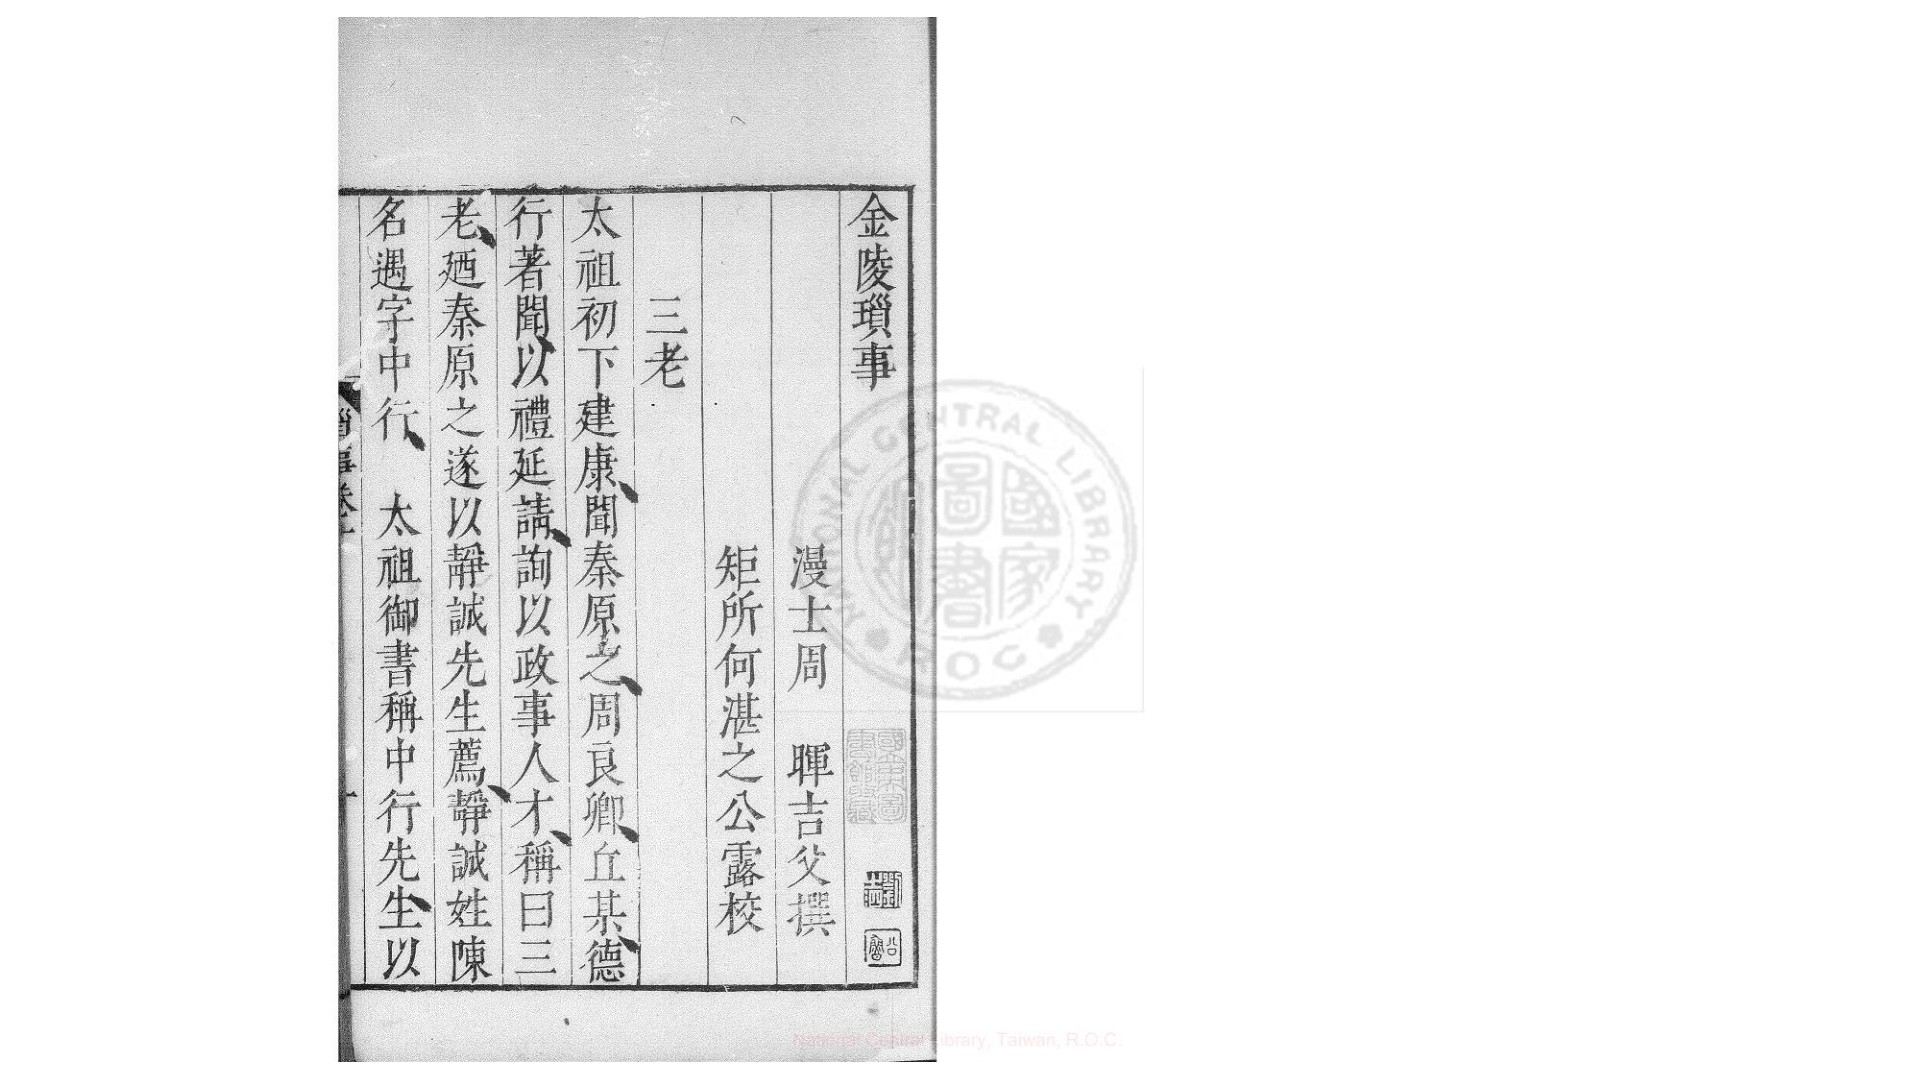 金陵瑣事
漫士周 暉吉父撰
矩所何湛之公露校
三老
太祖初下建康聞秦原之周良卿丘某德
行著聞以禮延請詢以政事人才稱曰三
老廼秦原之遂以靜誠先生薦靜誠姓陳
名遇字中行 太祖御書稱中行先生以
NATIONAL CENTRAL LIBRARY
ROC
國家圖書館
National Central Library, Taiwan, R.O.C.